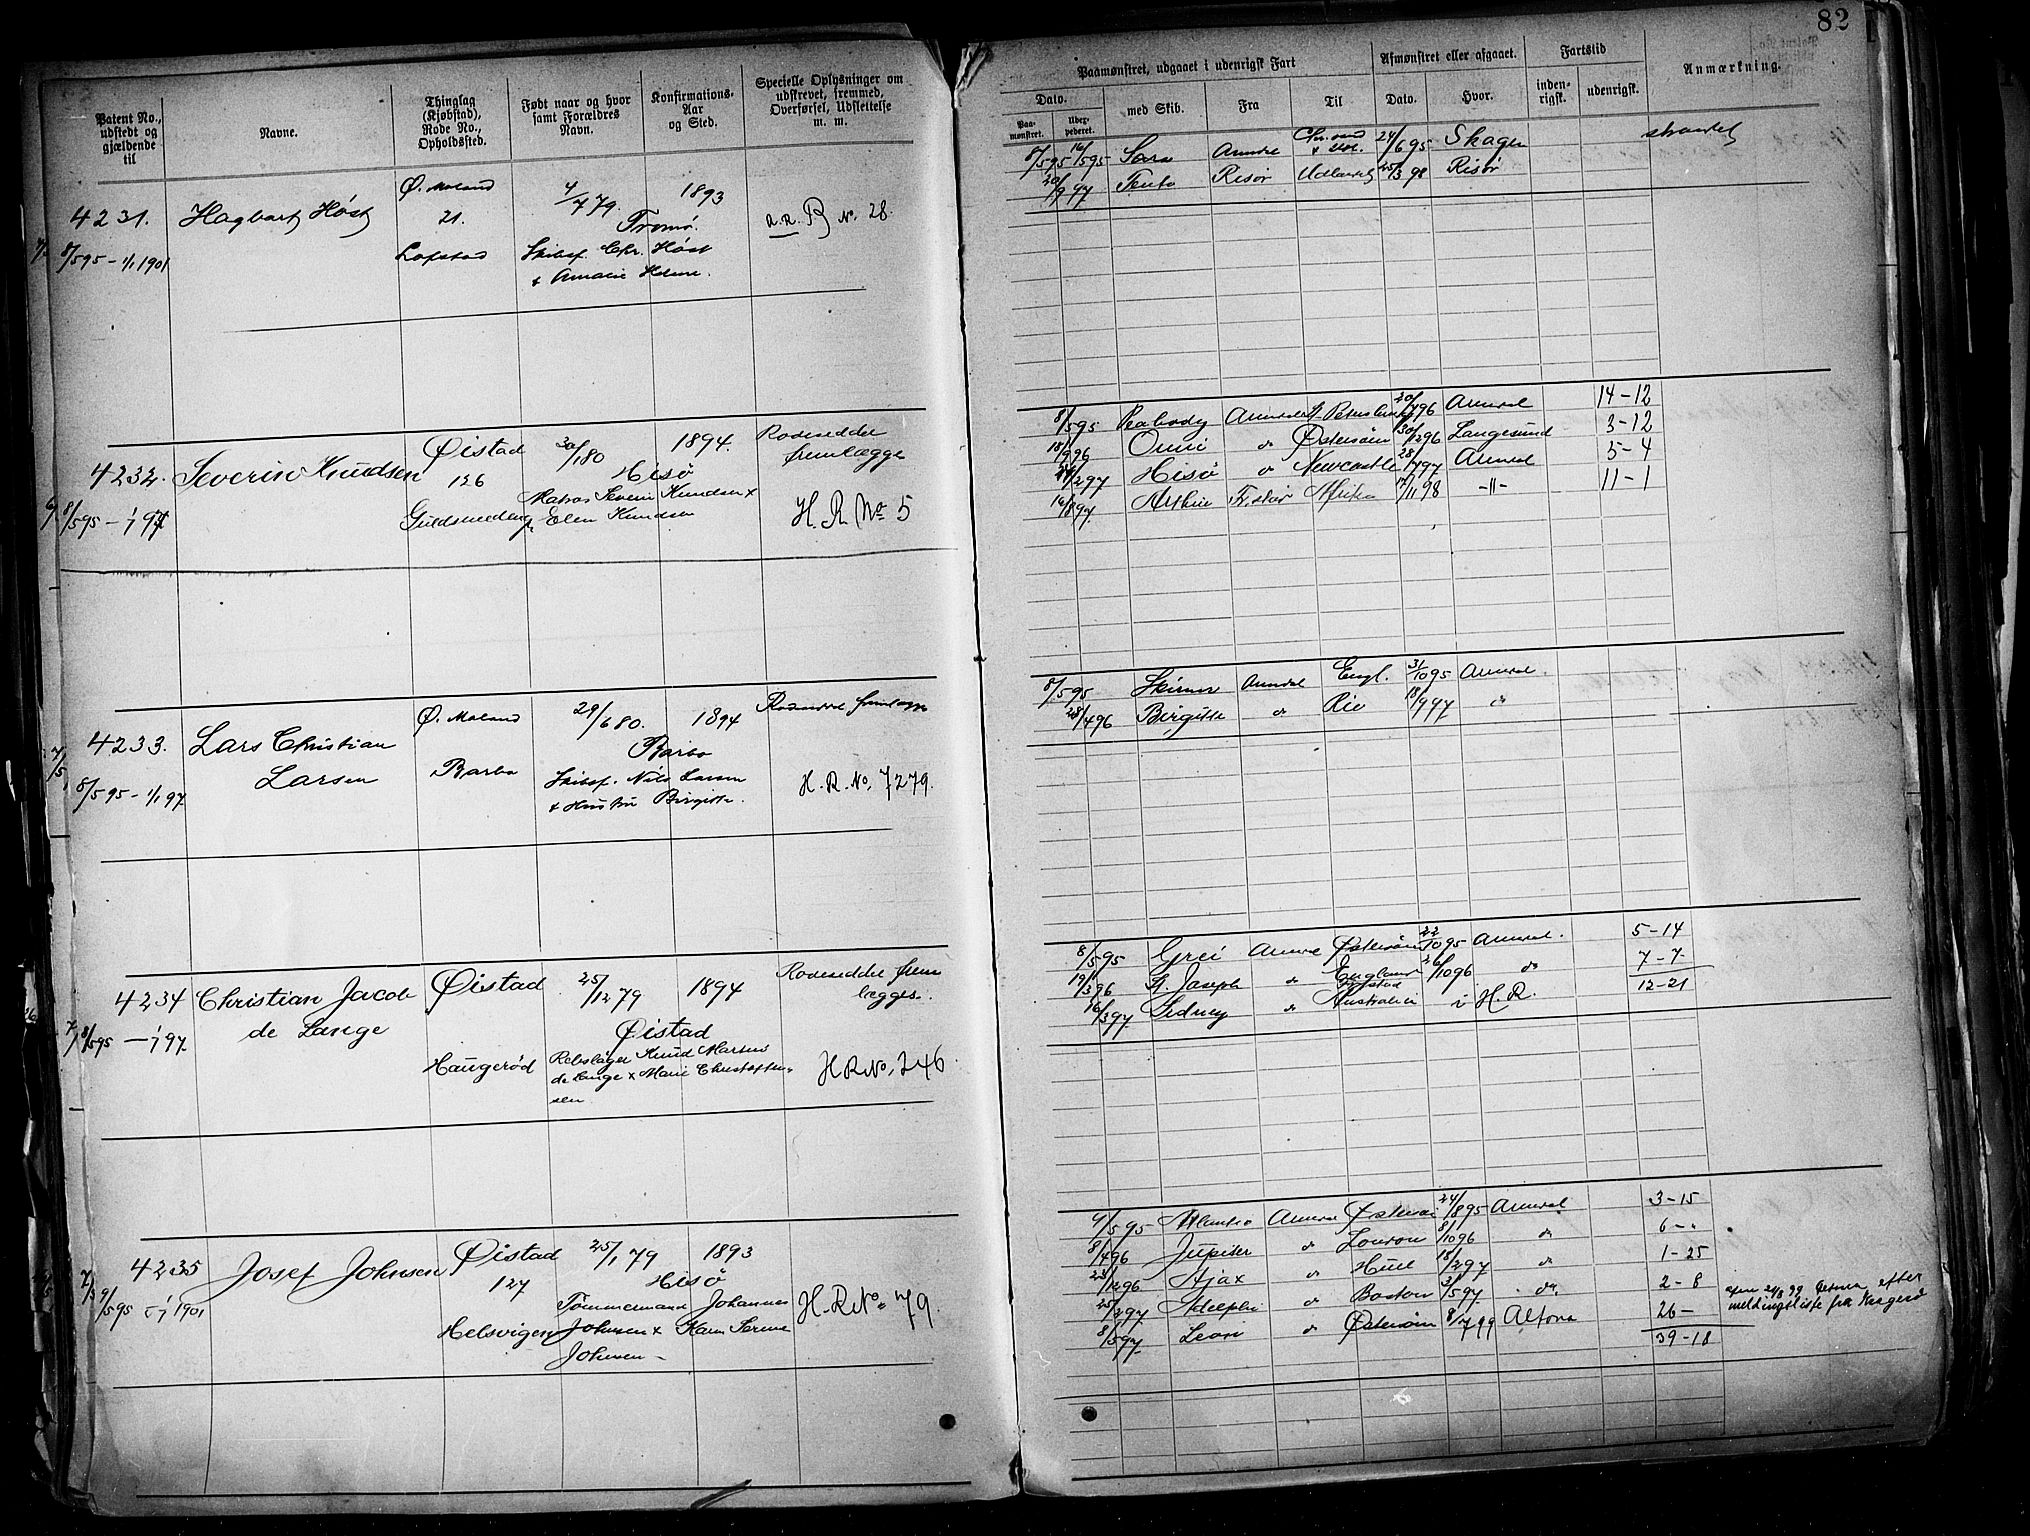 82
Patent No., udstedt og gjældende til
Navne.
Thinglag (Kjøbstad), Rode No., Opholdssted.
Født naar og hvor samt Forældres Navn.
Konfirmations- Aar og Sted.
Specielle Oplysninger om udskrevet, fremmed, Overførsel, Udslettelse m. m.
Paamønstret, udgaaet i udenrigsk Fart
Afmønstret eller afgaaet.
Fartstid
Anmærkning.
Dato.
med Skib.
Fra
Til
Dato.
Hvor.
inden- rigsk.
udenrigsk.
Paa- mønstret.
4231.
Hagbart Høst
Ø. Moland
21.
4/7 79.
1893
Tromø.
a.a. R No. 28.
8/5 95 - 1/1 1901
Skibsf. Chr. Høst
+ Amalie
8/5 95 16/5 95 Sara Arendal 24/6 95 Skagen strandet
20/9 97 Risør Udlandet 25/3 98 Risør
4232.
Severin Knudsen
Øistad
126
30/1 80
1894.
Hisø
Rodeseddel
fremlægge
8/5 95 - 1/1 97
Matros Severin Knudsen +
Elen Knudsen
H. R. No 5
8/5 95 Peabody Arendal 20/7 96 Arendal 14-12
18/9 96 do Østersøen 30/12 96 Langesund 3-12
24/2 97 Hisø do Newcastle 28/7 97 Arendal 5-4
16/8 97 Afrika 17/11 98 -"- 11-1
4233.
Lars Christian
Larsen
Ø. Moland
Barbo
29/6 80.
1894
Barbo
8/5 95 - 1/1 97
Skibsf. Nils Larsen
+ Hustru Birgitte.
H. R. No. 7279.
8/5 95 Skirner Arendal Engl. 31/10 95 Arendal.
28/4 96 Birgitte do Rio 18/9 97 do
4234
Christian Jacob
de Lange
Øistad
Haugerød
25/12 79
1894
Øistad
Rodeseddel frem
lægges.
8/5 95 - 1/1 97.
Rebslager Knud
de Lange + Marie Christoffer-
sen.
H R No. 246.
8/5 95 Grei Arendal Østersøen 22/10 95 Arendal. 5-14
19/3 96 St. Joseph do England 26/10 96 do 7-7
16/3 97 Sidney do Australien i H. R. 12-21
4235
Josef Johnsen
Øistad
127
Helsvigen
25/1 79
1893
Hisø
9/5 95 - 1/1 1901
Tømmermand Johannes
Johnsen + Karen Serine
Johnsen -
H. R No. 79.
9/5 95 Atlantic Arendal Østersøen 24/8 95 Arendal 3-15
8/4 96 Jupiter do London 8/10 96 do 6-"
23/12 96 Ajax do Hull 18/2 97 do 1-25
25/2 97 Adelphi do Boston 3/5 97 do. 2-8
8/5 97 Leon do Østersøen 8/7 99 Altona 26-
39-18
efter
meldingsliste fra Kragerø